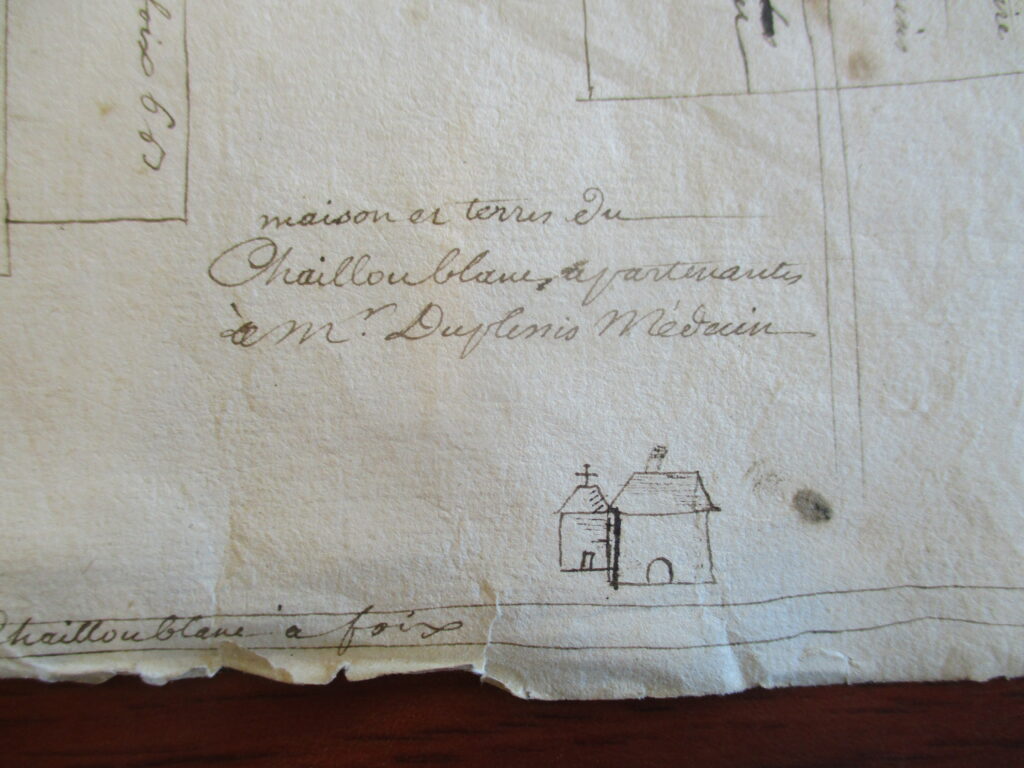 bois 60
maison et terres du
Chailloublanc, apartenantes
à Mr. Duplessis Médecin
Chailloublanc à foix